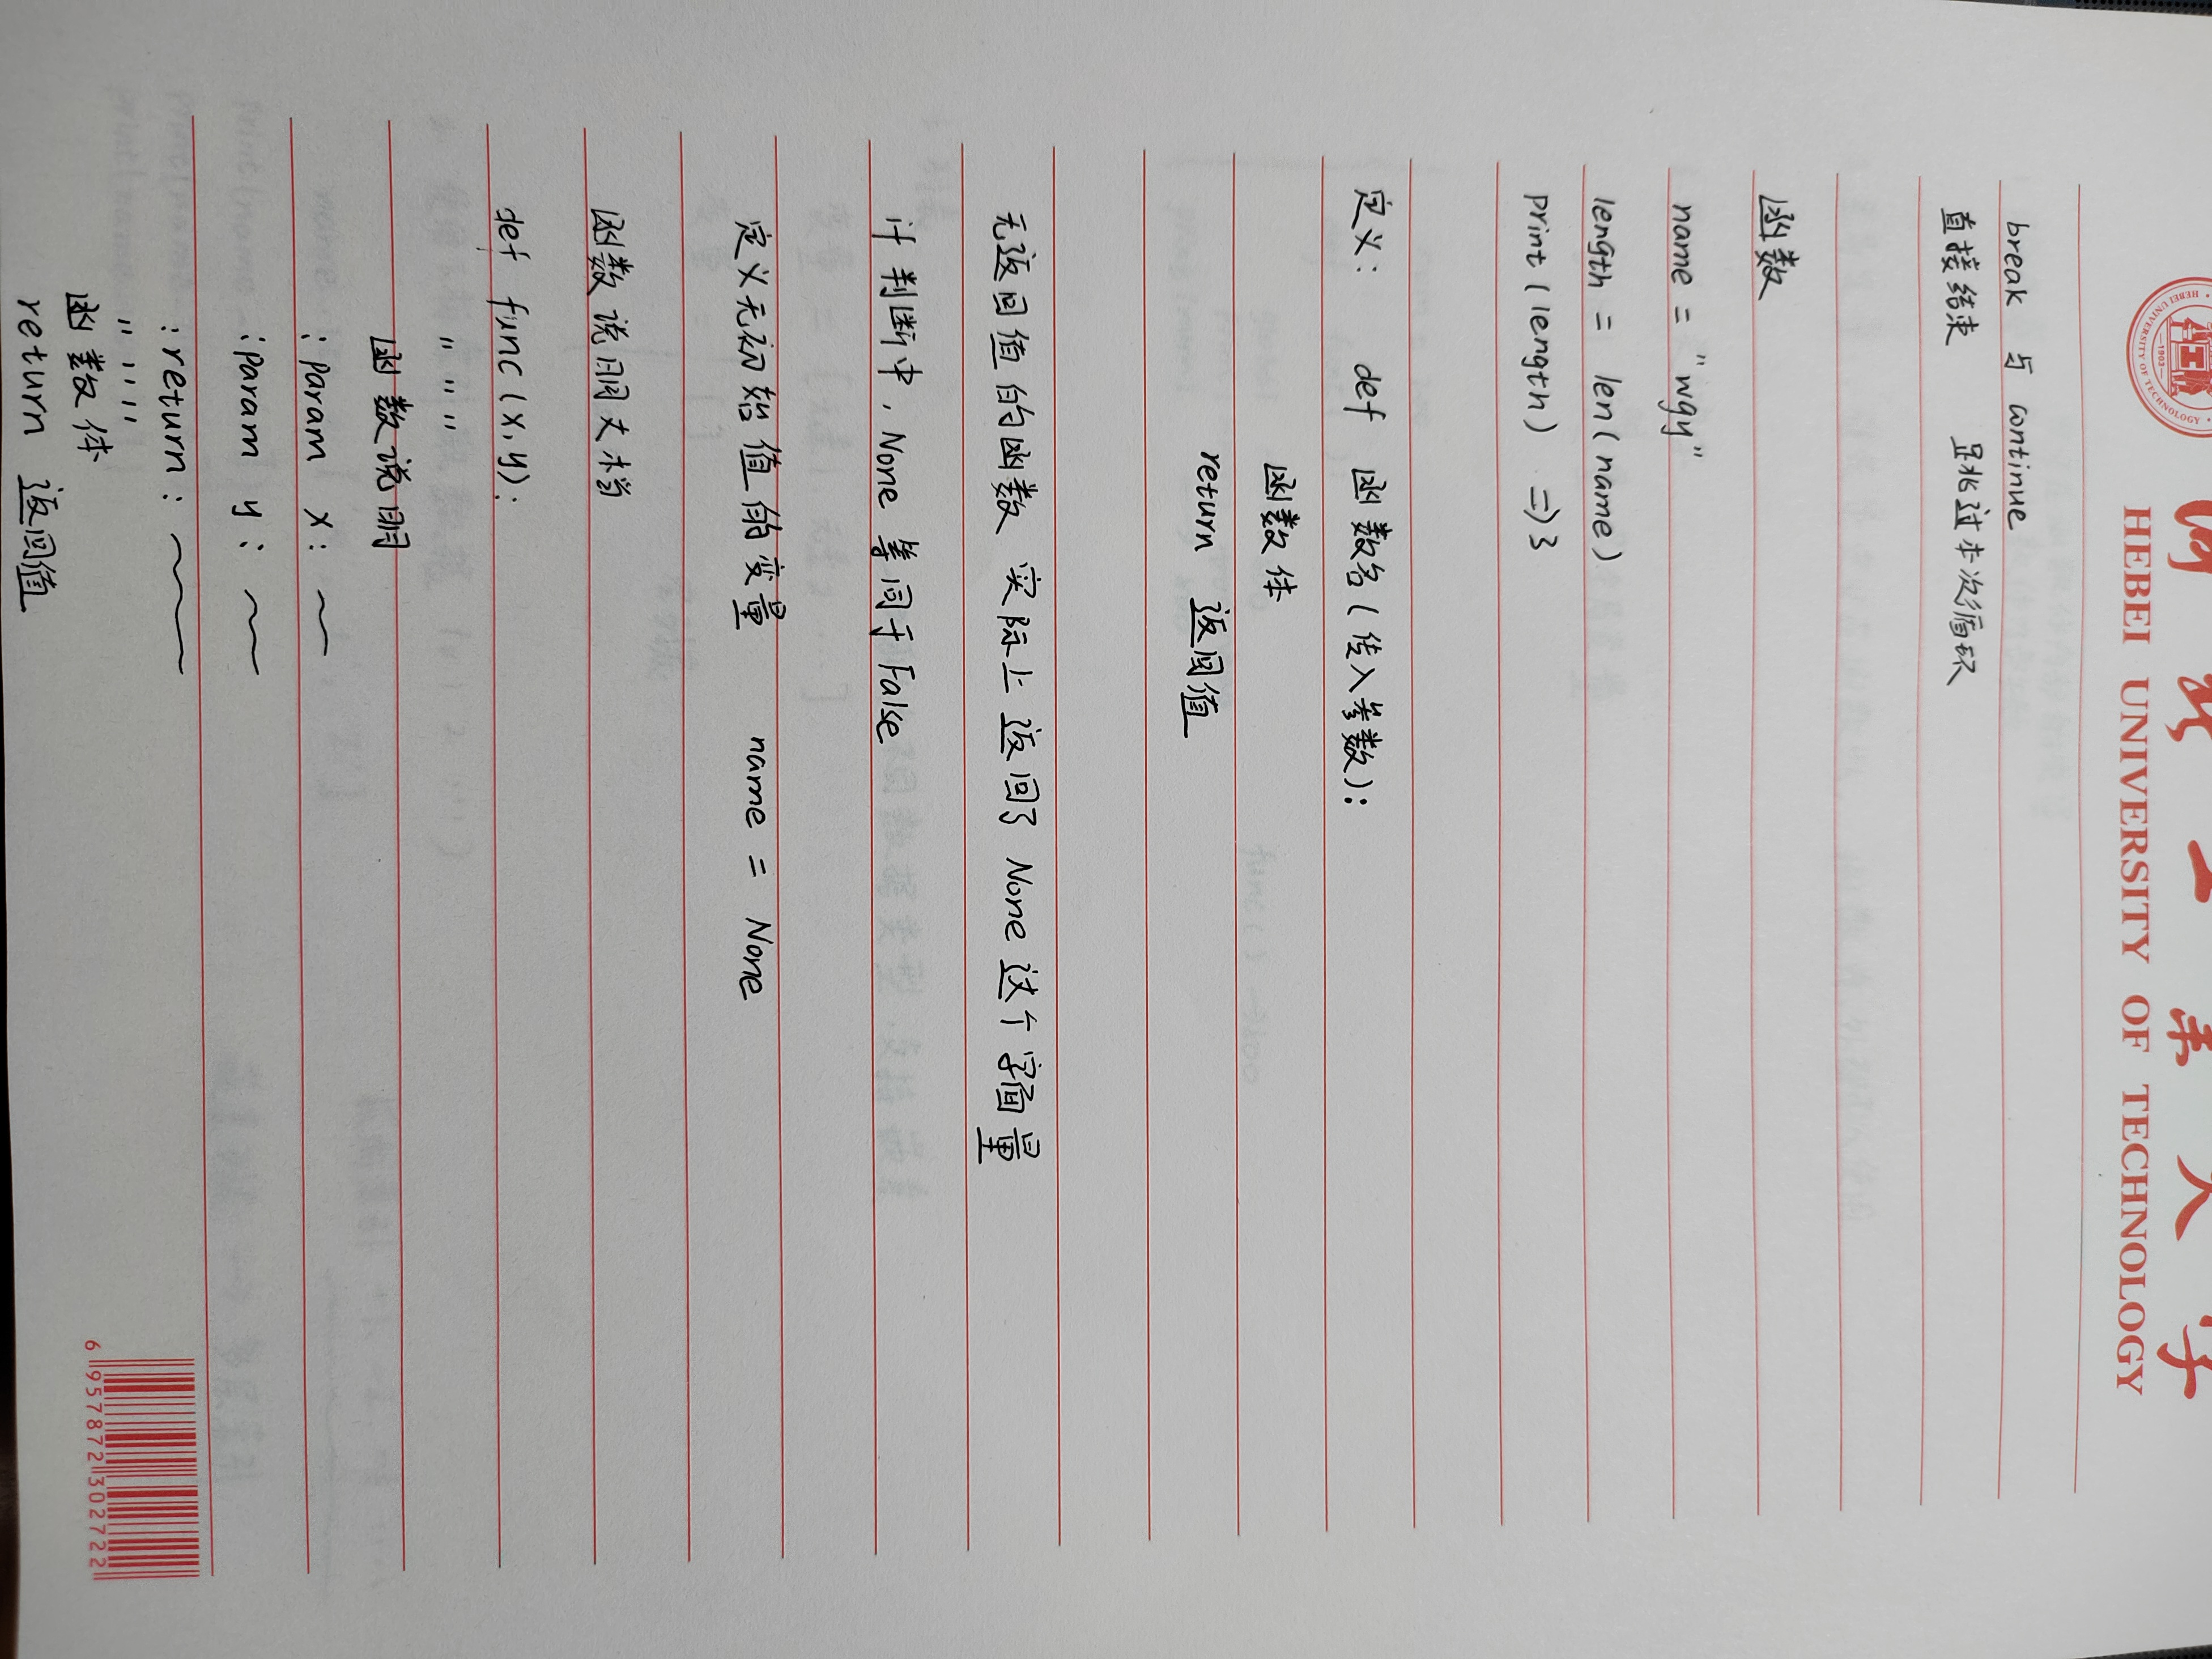 河北工业大学
HEBEI UNIVERSITY OF TECHNOLOGY
1903
HEBEI UNIVERSITY OF TECHNOLOGY
break 与 continue
直接结束 跳过本次循环
函数
name = "wgy"
length = len(name)
print(length) => 3
定义: def 函数名(传入参数):
函数体
return 返回值
无返回值的函数 实际上返回了 None 这个字面量
if 判断中, None 等同于 False
定义无初始值的变量 name = None
函数说明文档
def func(x, y):
" " "
函数说明
: param x: ~~
: param y: ~~
: return: ~~
" " "
函数体
return 返回值
6 957872 302722